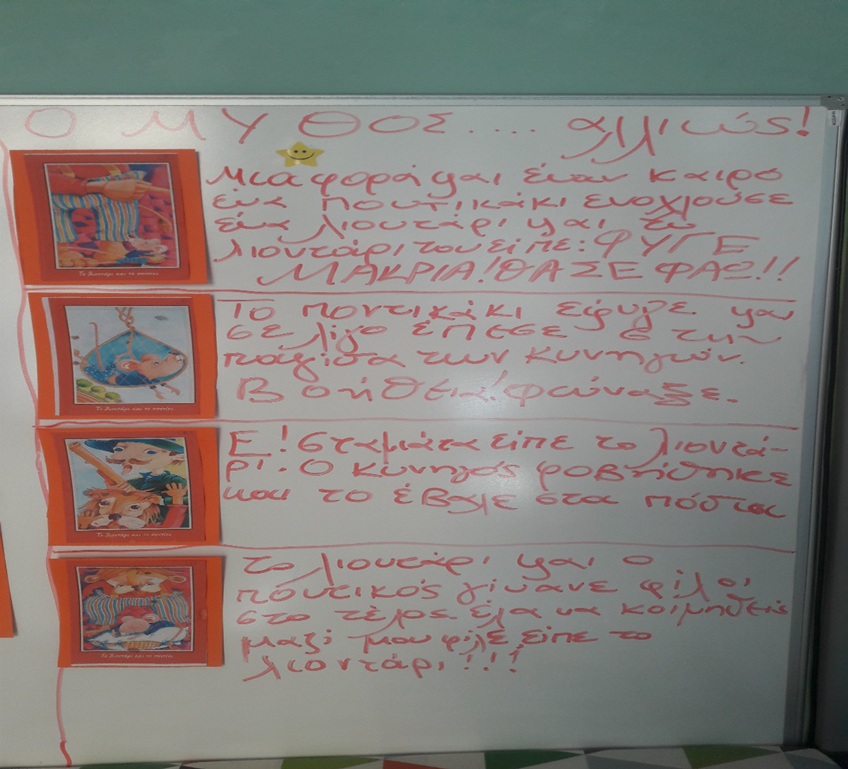 Ο ΜΥΘΟΣ.... αλλιώς!
Μια φορά και έναν καιρό
ένα ποντικάκι ενοχλούσε
ένα λιοντάρι και το
λιοντάρι του είπε: ΦΥΓΕ
ΜΑΚΡΙΑ! ΘΑ ΣΕ ΦΑΩ!!
Το λιοντάρι και το ποντίκι
Το ποντικάκι έφυγε και
σε λίγο έπεσε σ την
παγίδα των κυνηγών.
Βοήθεια! φώναξε.
Το λιοντάρι και το ποντίκι
Ε! Σταμάτα είπε το λιοντά-
ρι. Ο κυνηγός φοβήθηκε
και το έβαλε στα πόδια
Το λιοντάρι και το ποντίκι
το λιοντάρι και ο
ποντικός γίνανε φίλοι
στο τέλος. έλα να κοιμηθείς
μαζί μου φίλε είπε το
λιοντάρι!!!
Το λιοντάρι και το ποντίκι